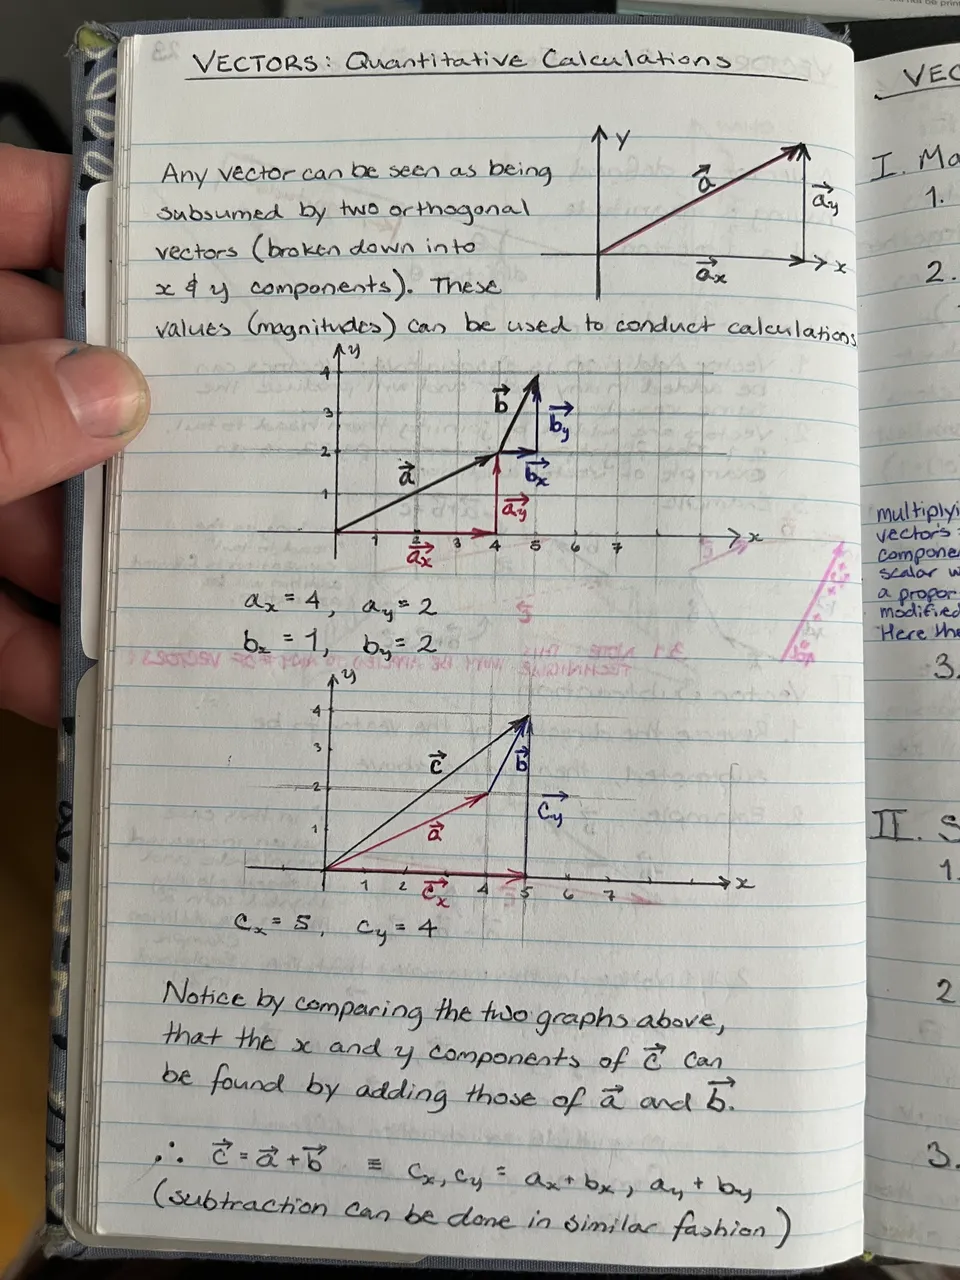 VECTORS: Quantitative Calculations
Any vector can be seen as being
subsumed by two orthogonal
vectors (broken down into
x & y components). These
values (magnitudes) can be used to conduct calculations
y
a⃗
a⃗y
a⃗x
x
y
4
3
2
1
b⃗
b⃗y
b⃗x
a⃗
a⃗y
a⃗x
1 2 3 4 5 6 7
x
ax = 4, ay = 2
bx = 1, by = 2
y
4
3
2
1
c⃗
b⃗
a⃗
c⃗y
c⃗x
1 2 4 5 6 7
x
cx = 5, cy = 4
Notice by comparing the two graphs above,
that the x and y components of c⃗ can
be found by adding those of a⃗ and b⃗.
∴ c⃗ = a⃗ + b⃗ ≡ cx, cy = ax + bx, ay + by
(subtraction can be done in similar fashion)
VEC
I. Ma
1.
2.
multiplyi
vector's
compone
scalar w
a propor
modified
Here the
3.
II. S
1.
2
3.